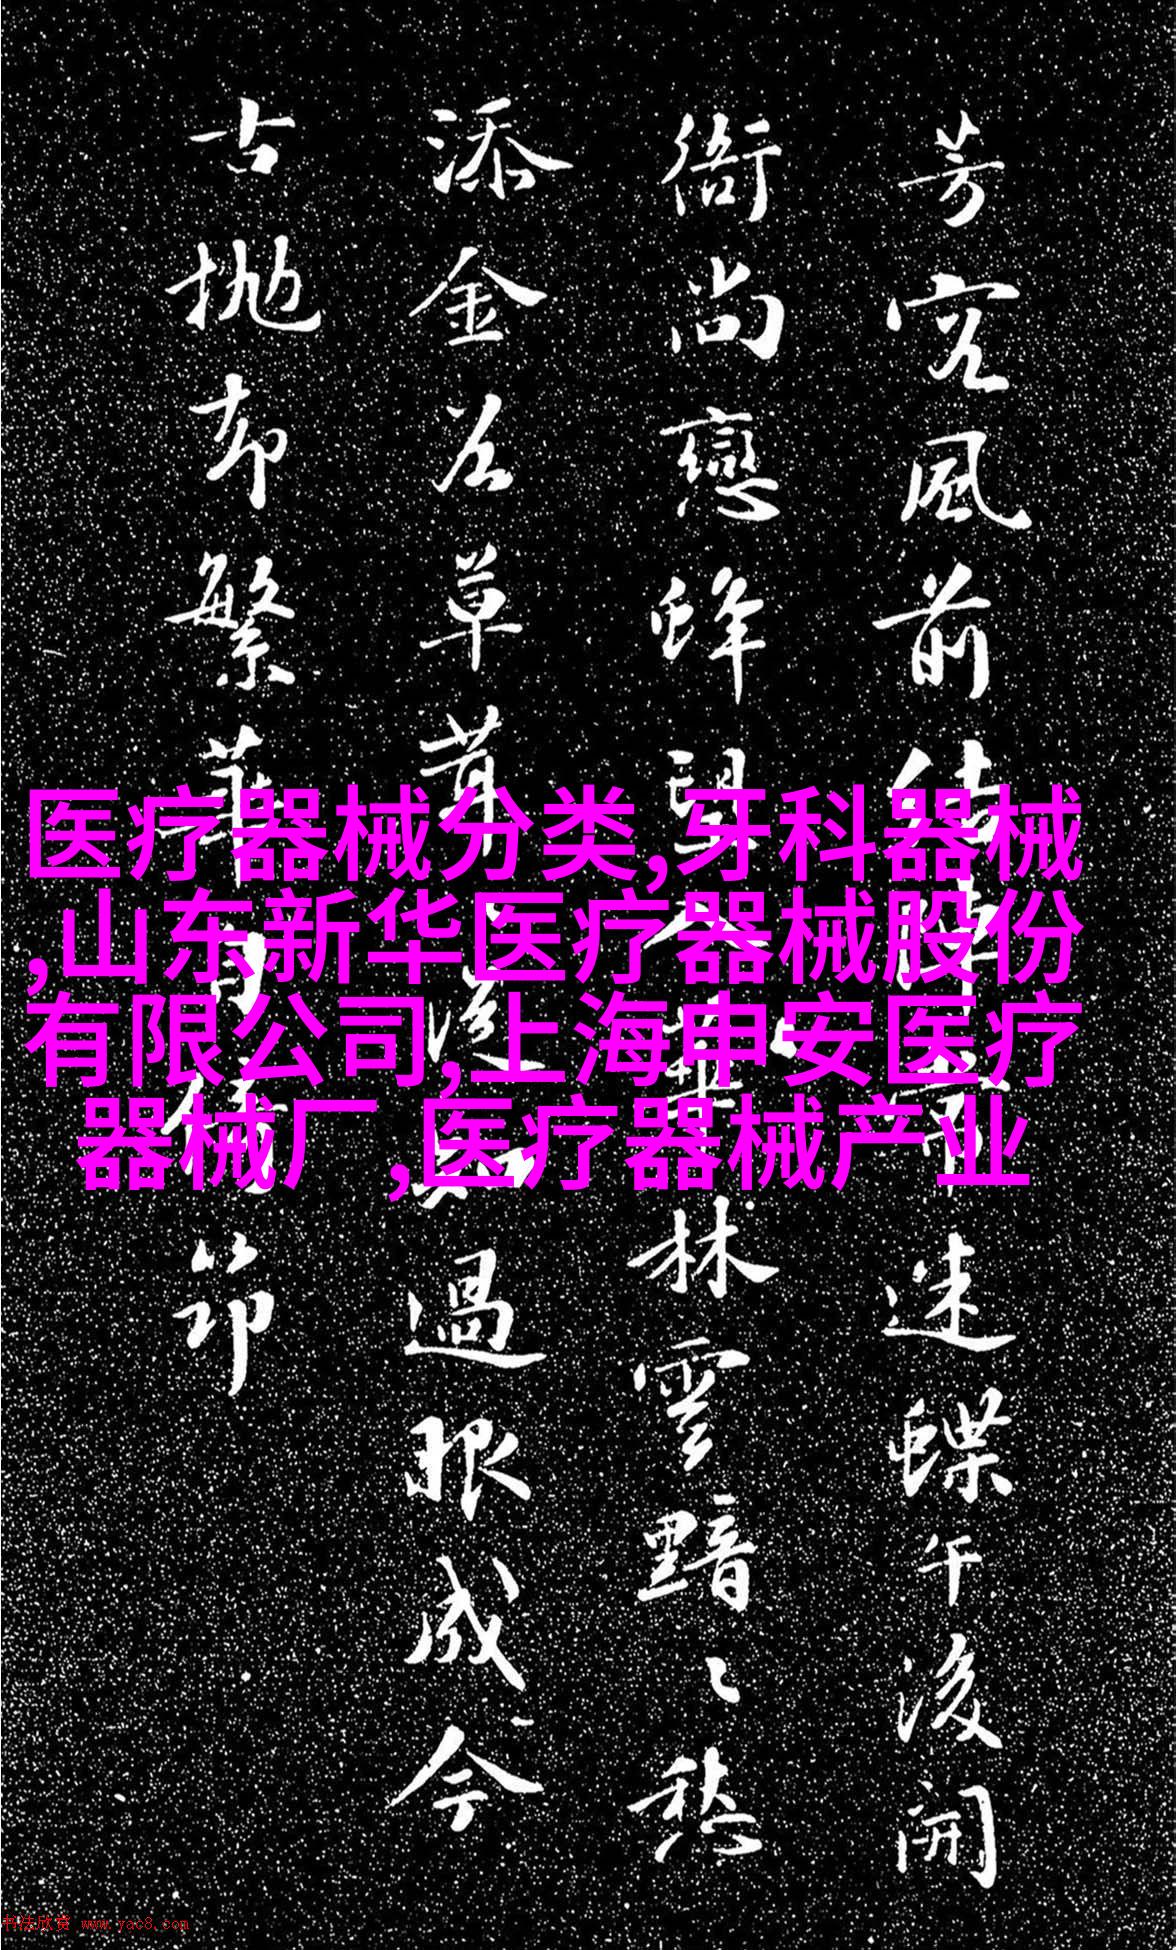 芳風前迷蝶午後開
衙尚戀蜂望林雲黯々愁
添金谷草茸過眼成今
古抛却繁華節
医疗器械分类,牙科器械
,山东新华医疗器械股份
有限公司,上海申安医疗
器械厂,医疗器械产业
书法欣赏 www.yac8.com